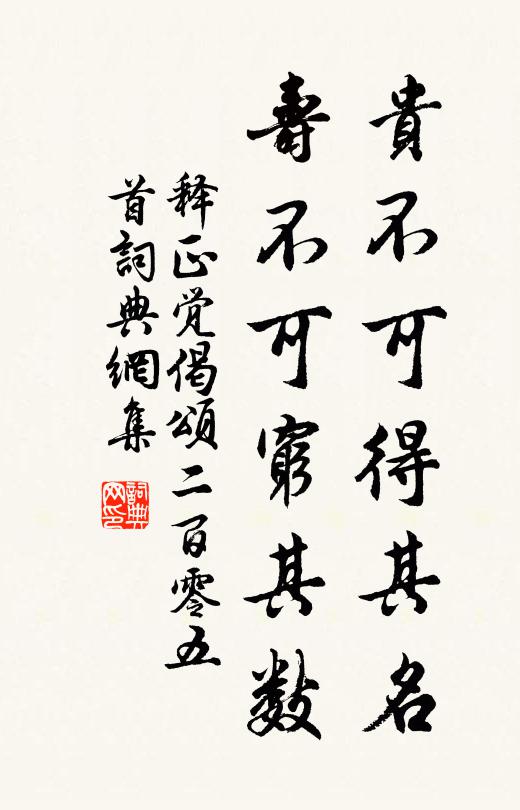 貴不可得其名
壽不可窮其数
释正觉偈頌二百零五
首詞典網集
詞典網印